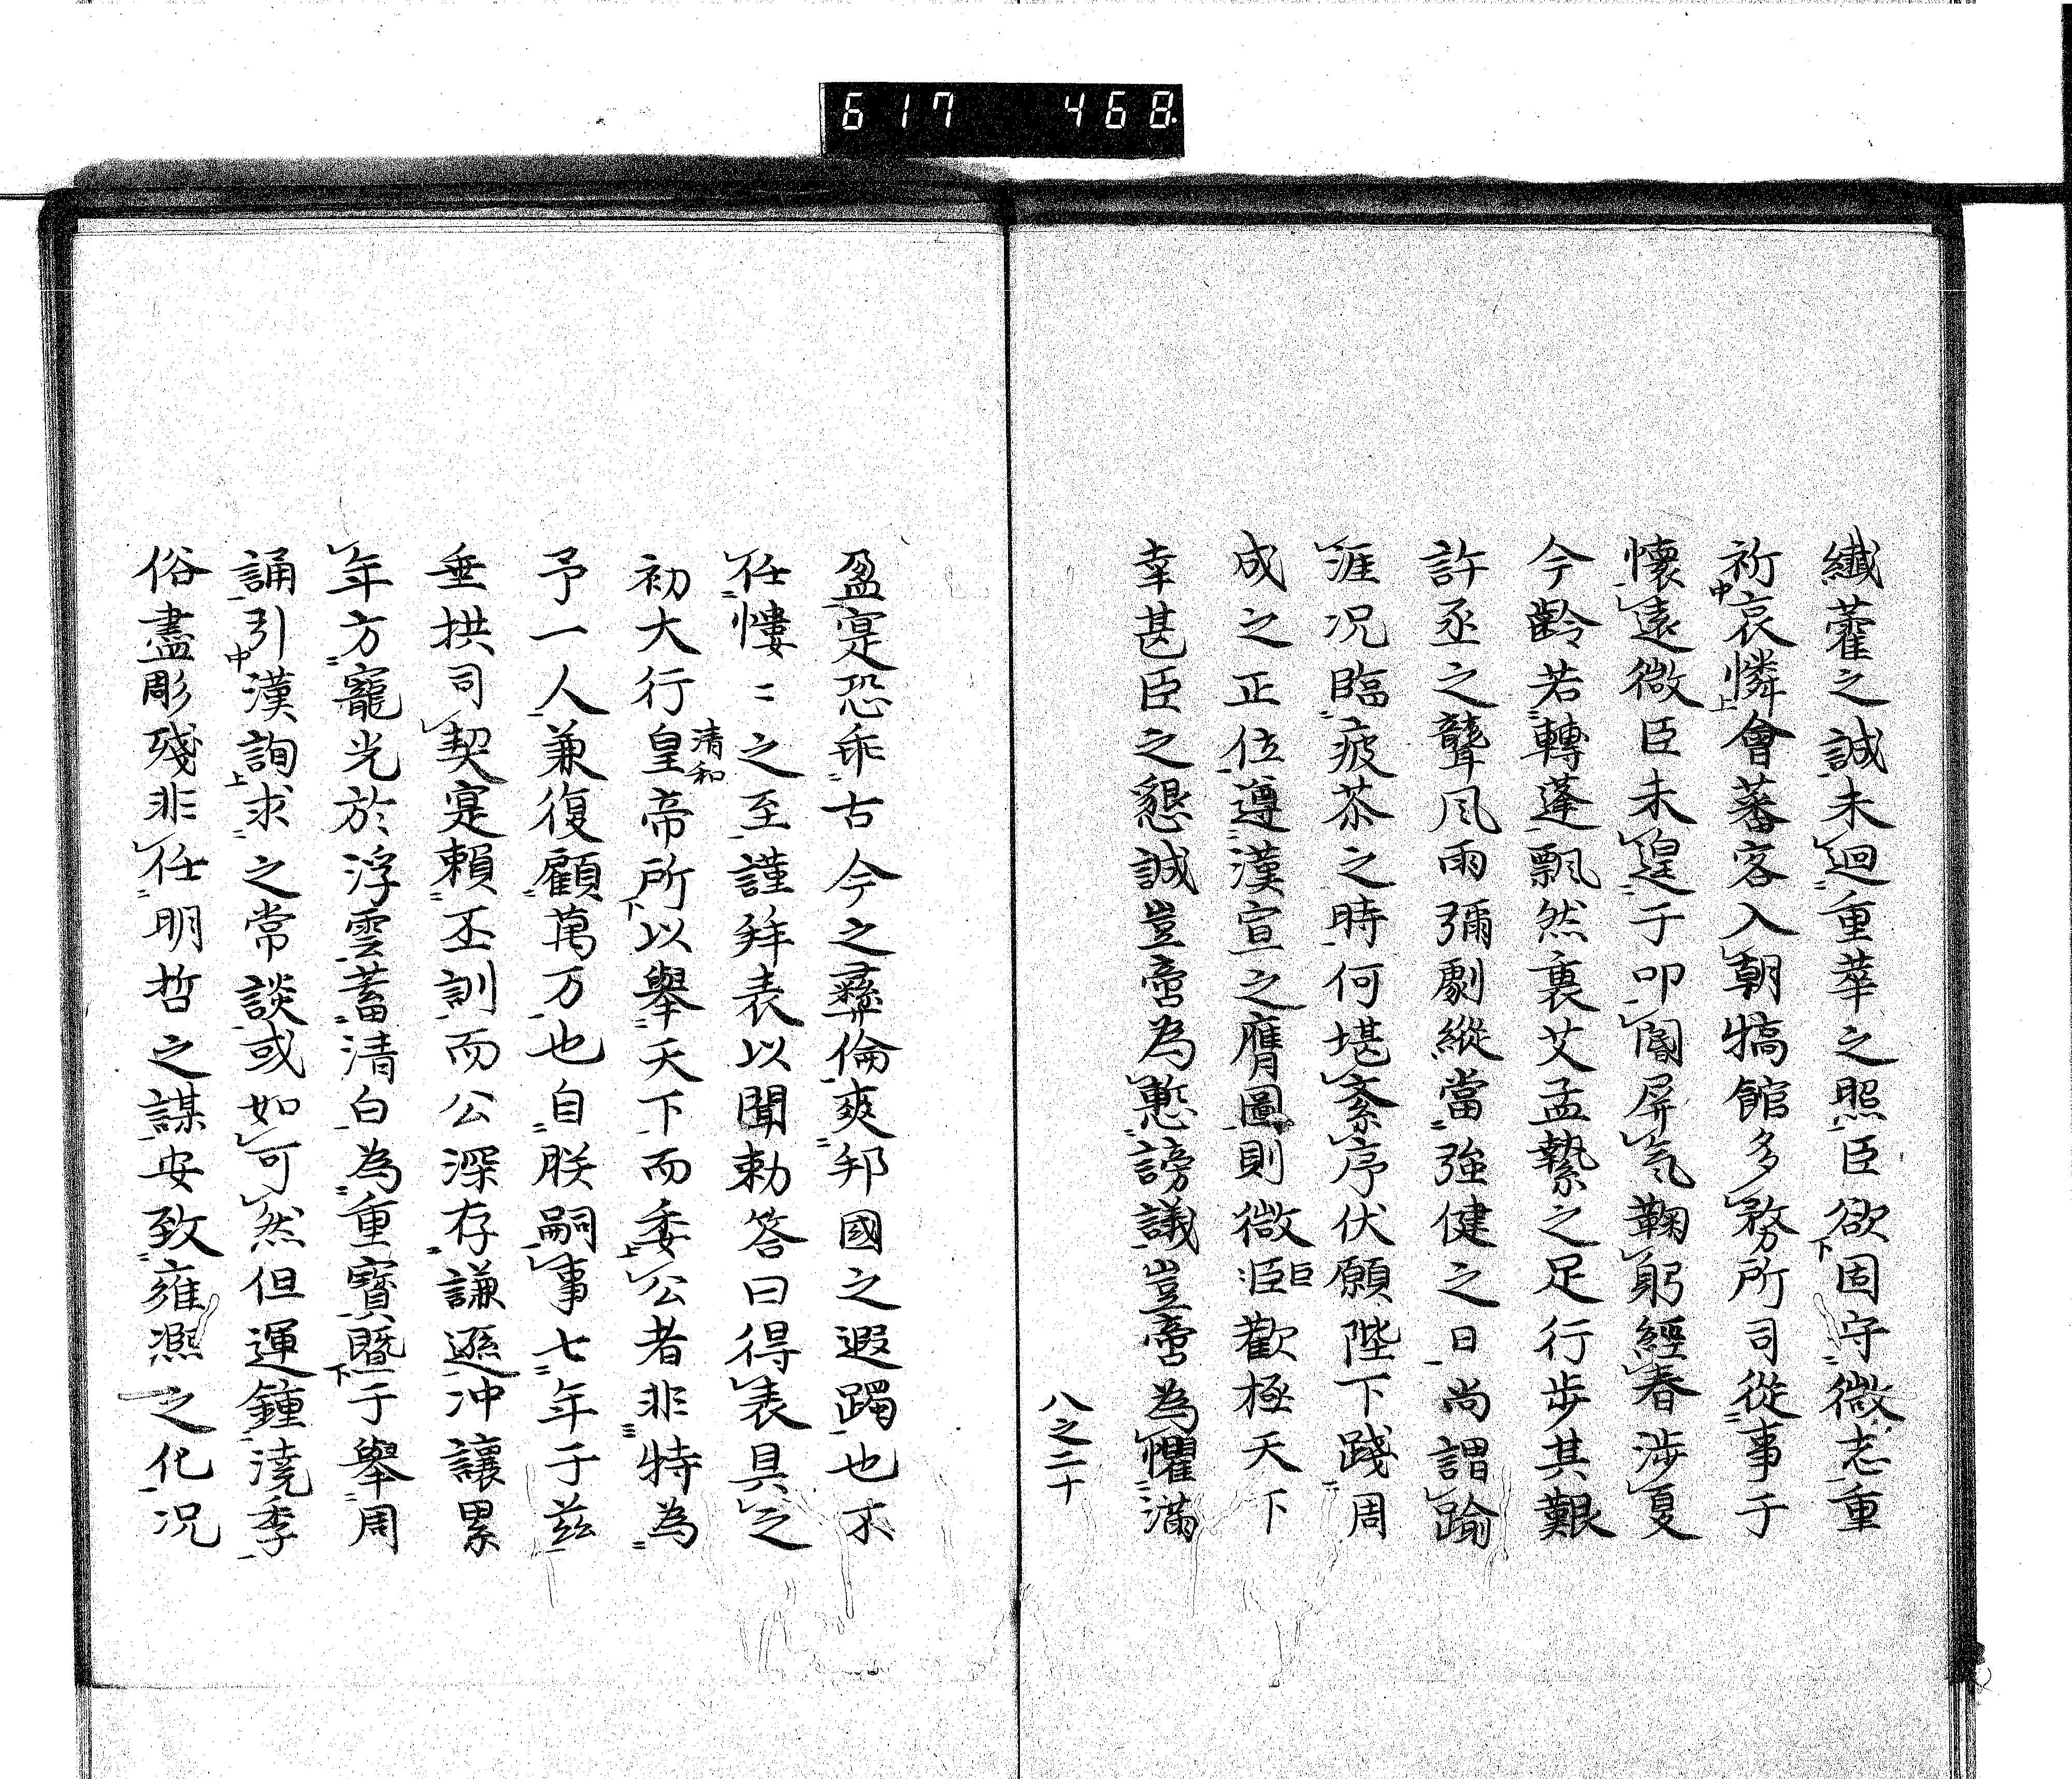 617 468.
纎藿之誠未迴重華之照臣欲固守微志重
祈哀憐會蕃客入朝犒館多務所司從事于
懷遠微臣未遑于叩閽屏氣鞠躬經春渉夏
今齡若轉蓬飄然裏艾孟縶之足行歩其艱
許丞之聾風雨彌劇縱當強健之日尚謂踰
涯况臨疲苶之時何堪紊序伏願陛下踐周
成之正位遵漢宣之膺圖則微臣歡極天下
巨
幸甚臣之懇誠豈啻為慙謗議豈啻為懼滿
八之二十
盈寔恐乖古今之彝倫爽邦國之遐躅也不
任慺〻之至謹拜表以聞勅答曰得表具之
初大行皇帝所以舉天下而委公者非特為
清和
予一人兼復顧萬万也自朕嗣事七年于茲
垂拱司契寔賴丕訓而公深存謙遜冲讓累
年方寵光於浮雲蓄清白為重寳曁于舉周
誦引漢詢求之常談或如可然但運鍾澆季
俗盡彫殘非任明哲之謀安致雍凞之化况